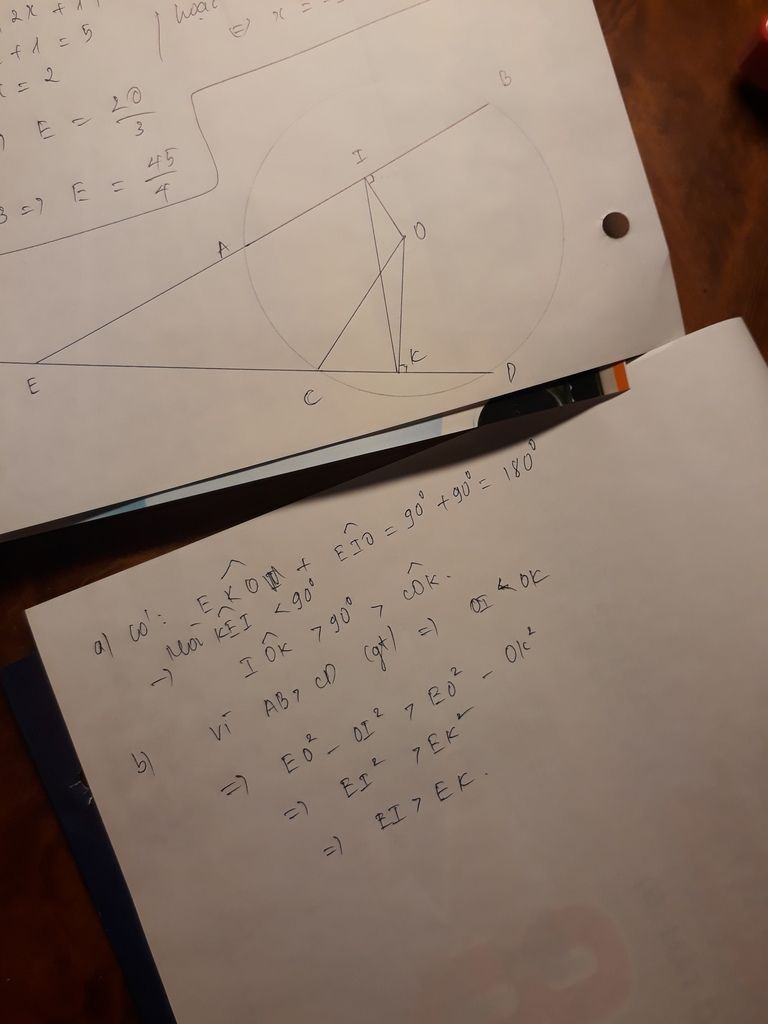 2x + 1
hoặc
+ 1 = 5
⇔ x =
x = 2
E = 20/3
3 => E = 45/4
B
I
O
A
K
E
C
D
a) Có: EK̂O + EÎO = 90° + 90° = 180°
Mà KÊI < 90°
-> IÔK > 90° > CÔK.
b) Vì AB > CD (gt) => OI < OK
=> EO² - OI² > EO² - OK²
=> EI² > EK²
=> EI > EK.